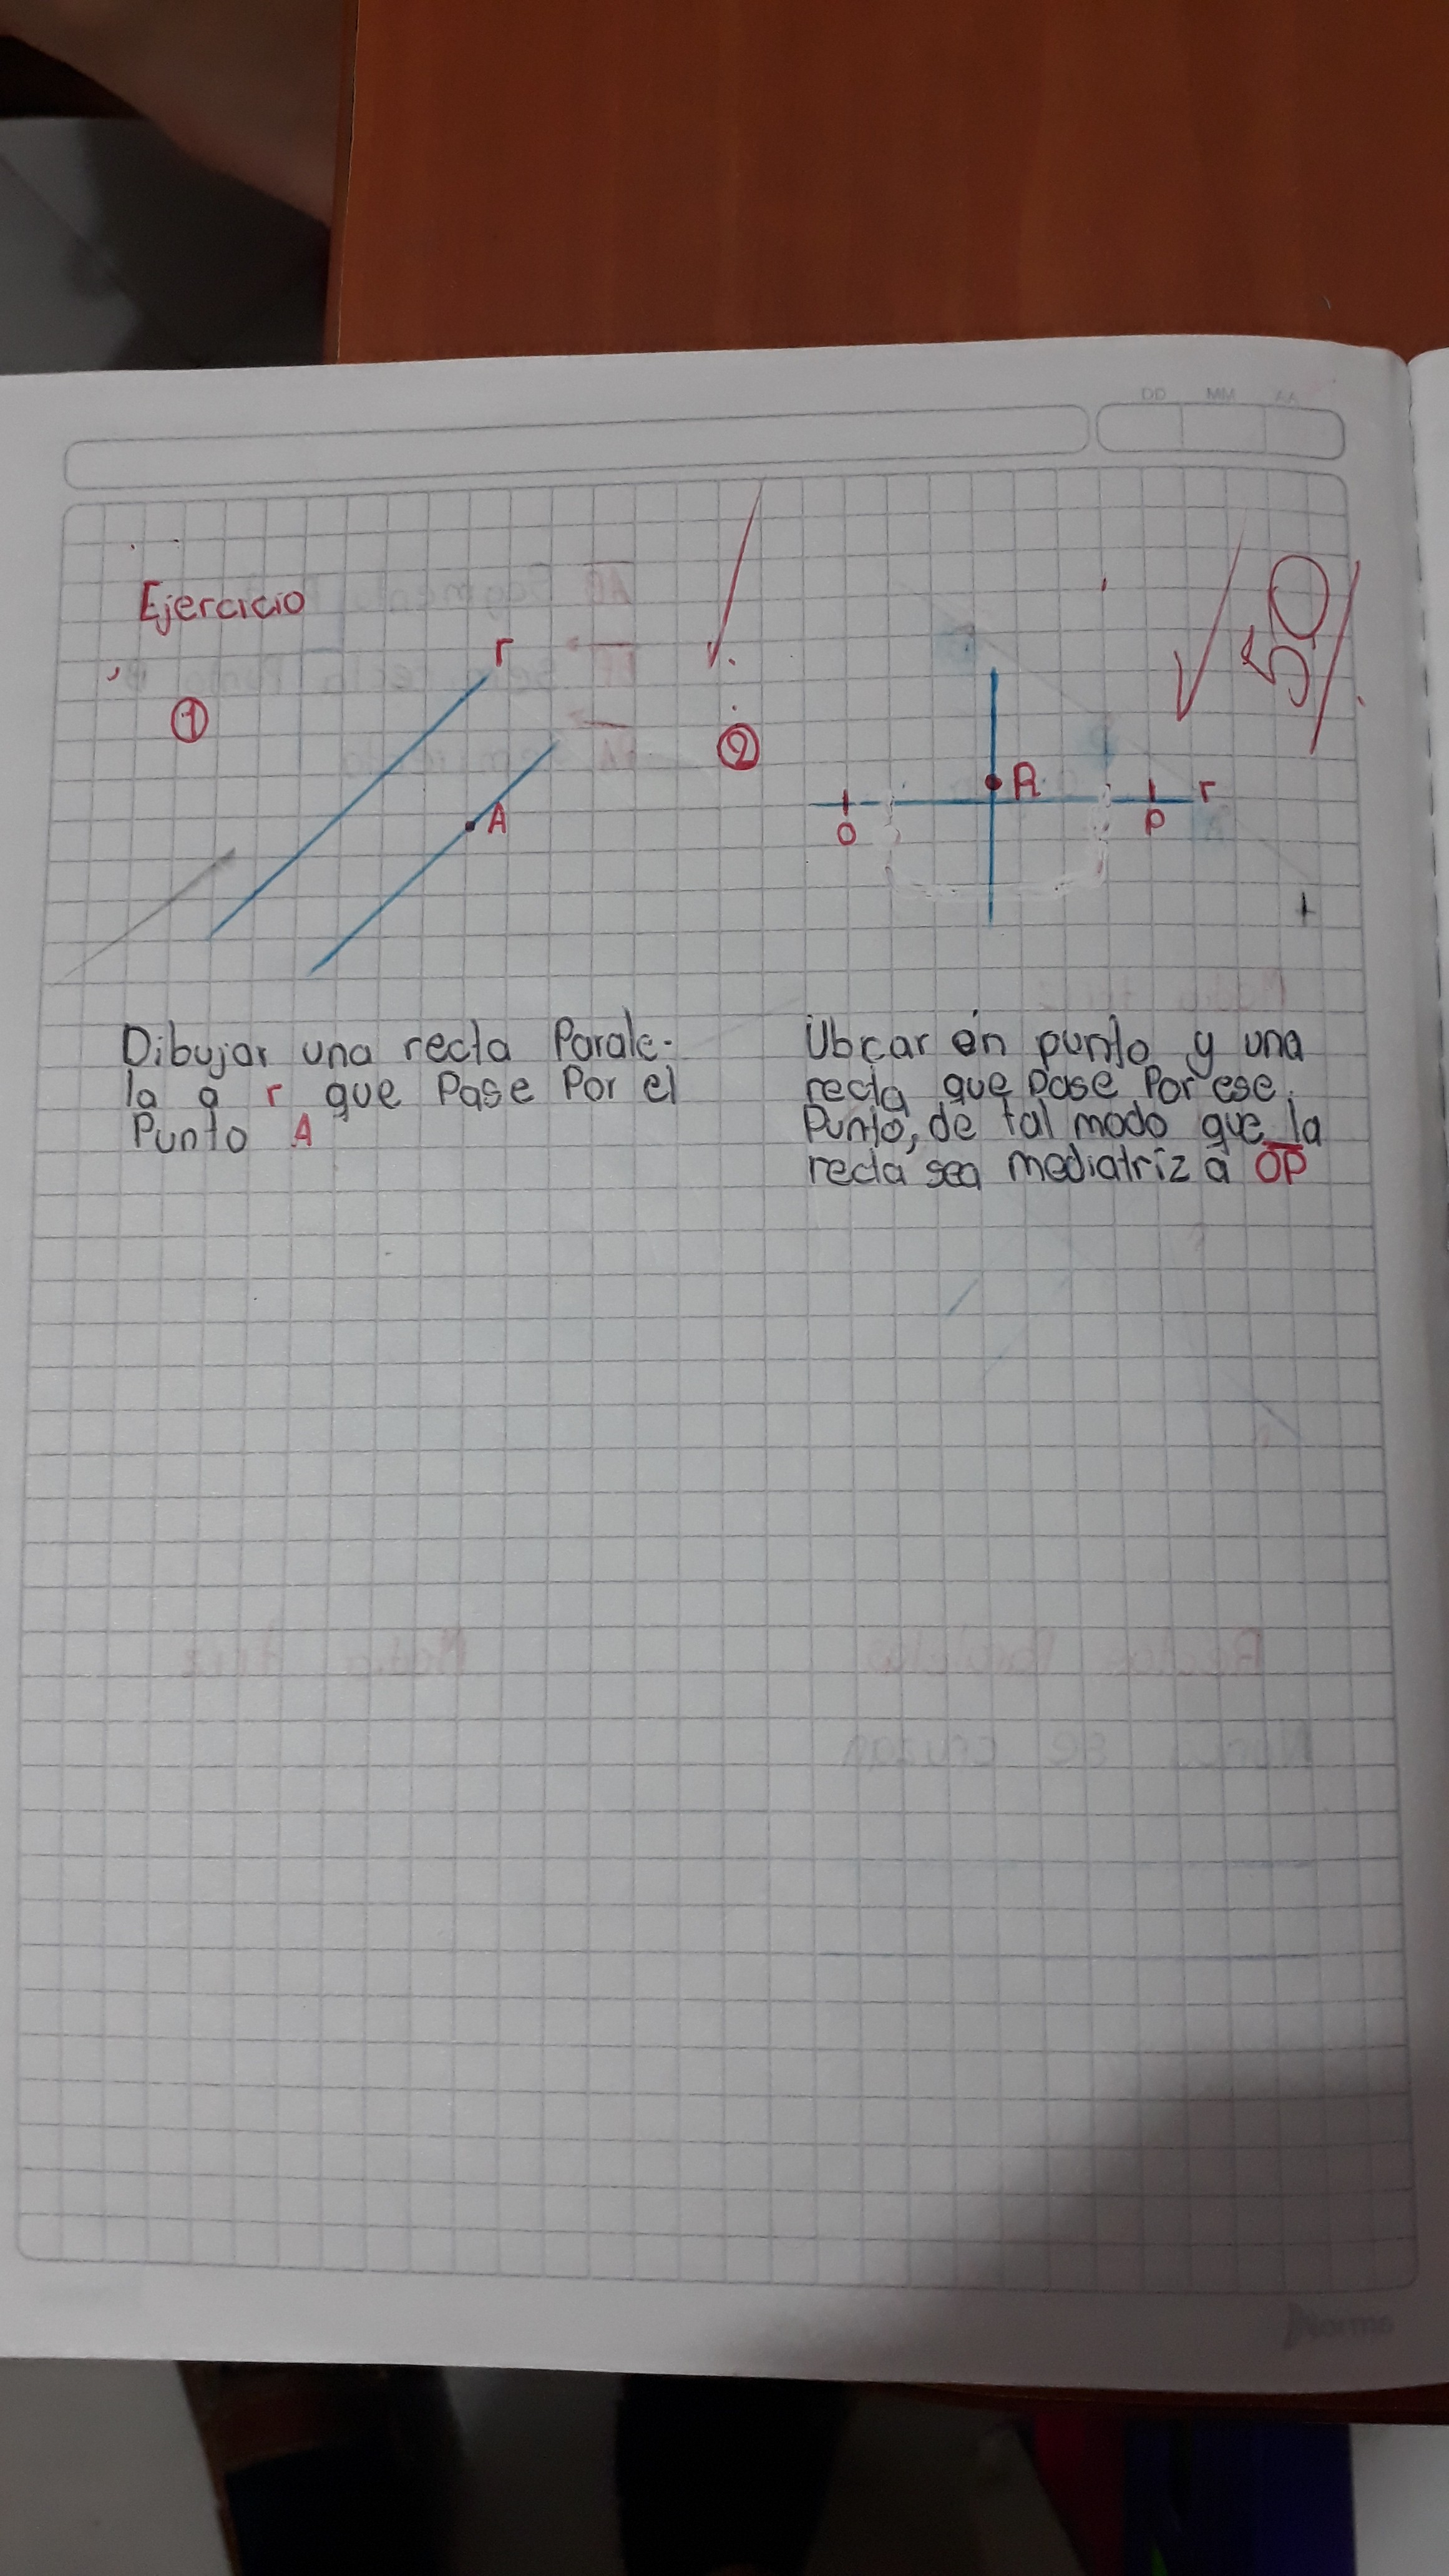 DD MM AA
Ejercicio
①
r
A
②
A
O
P
r
50
Dibujar una recta Parale-
la a r que Pase Por el
Punto A
Ubcar on punto y una
recta que Pase Por ese
Punto, de tal modo que la
recta sea mediatriz a OP
Norma